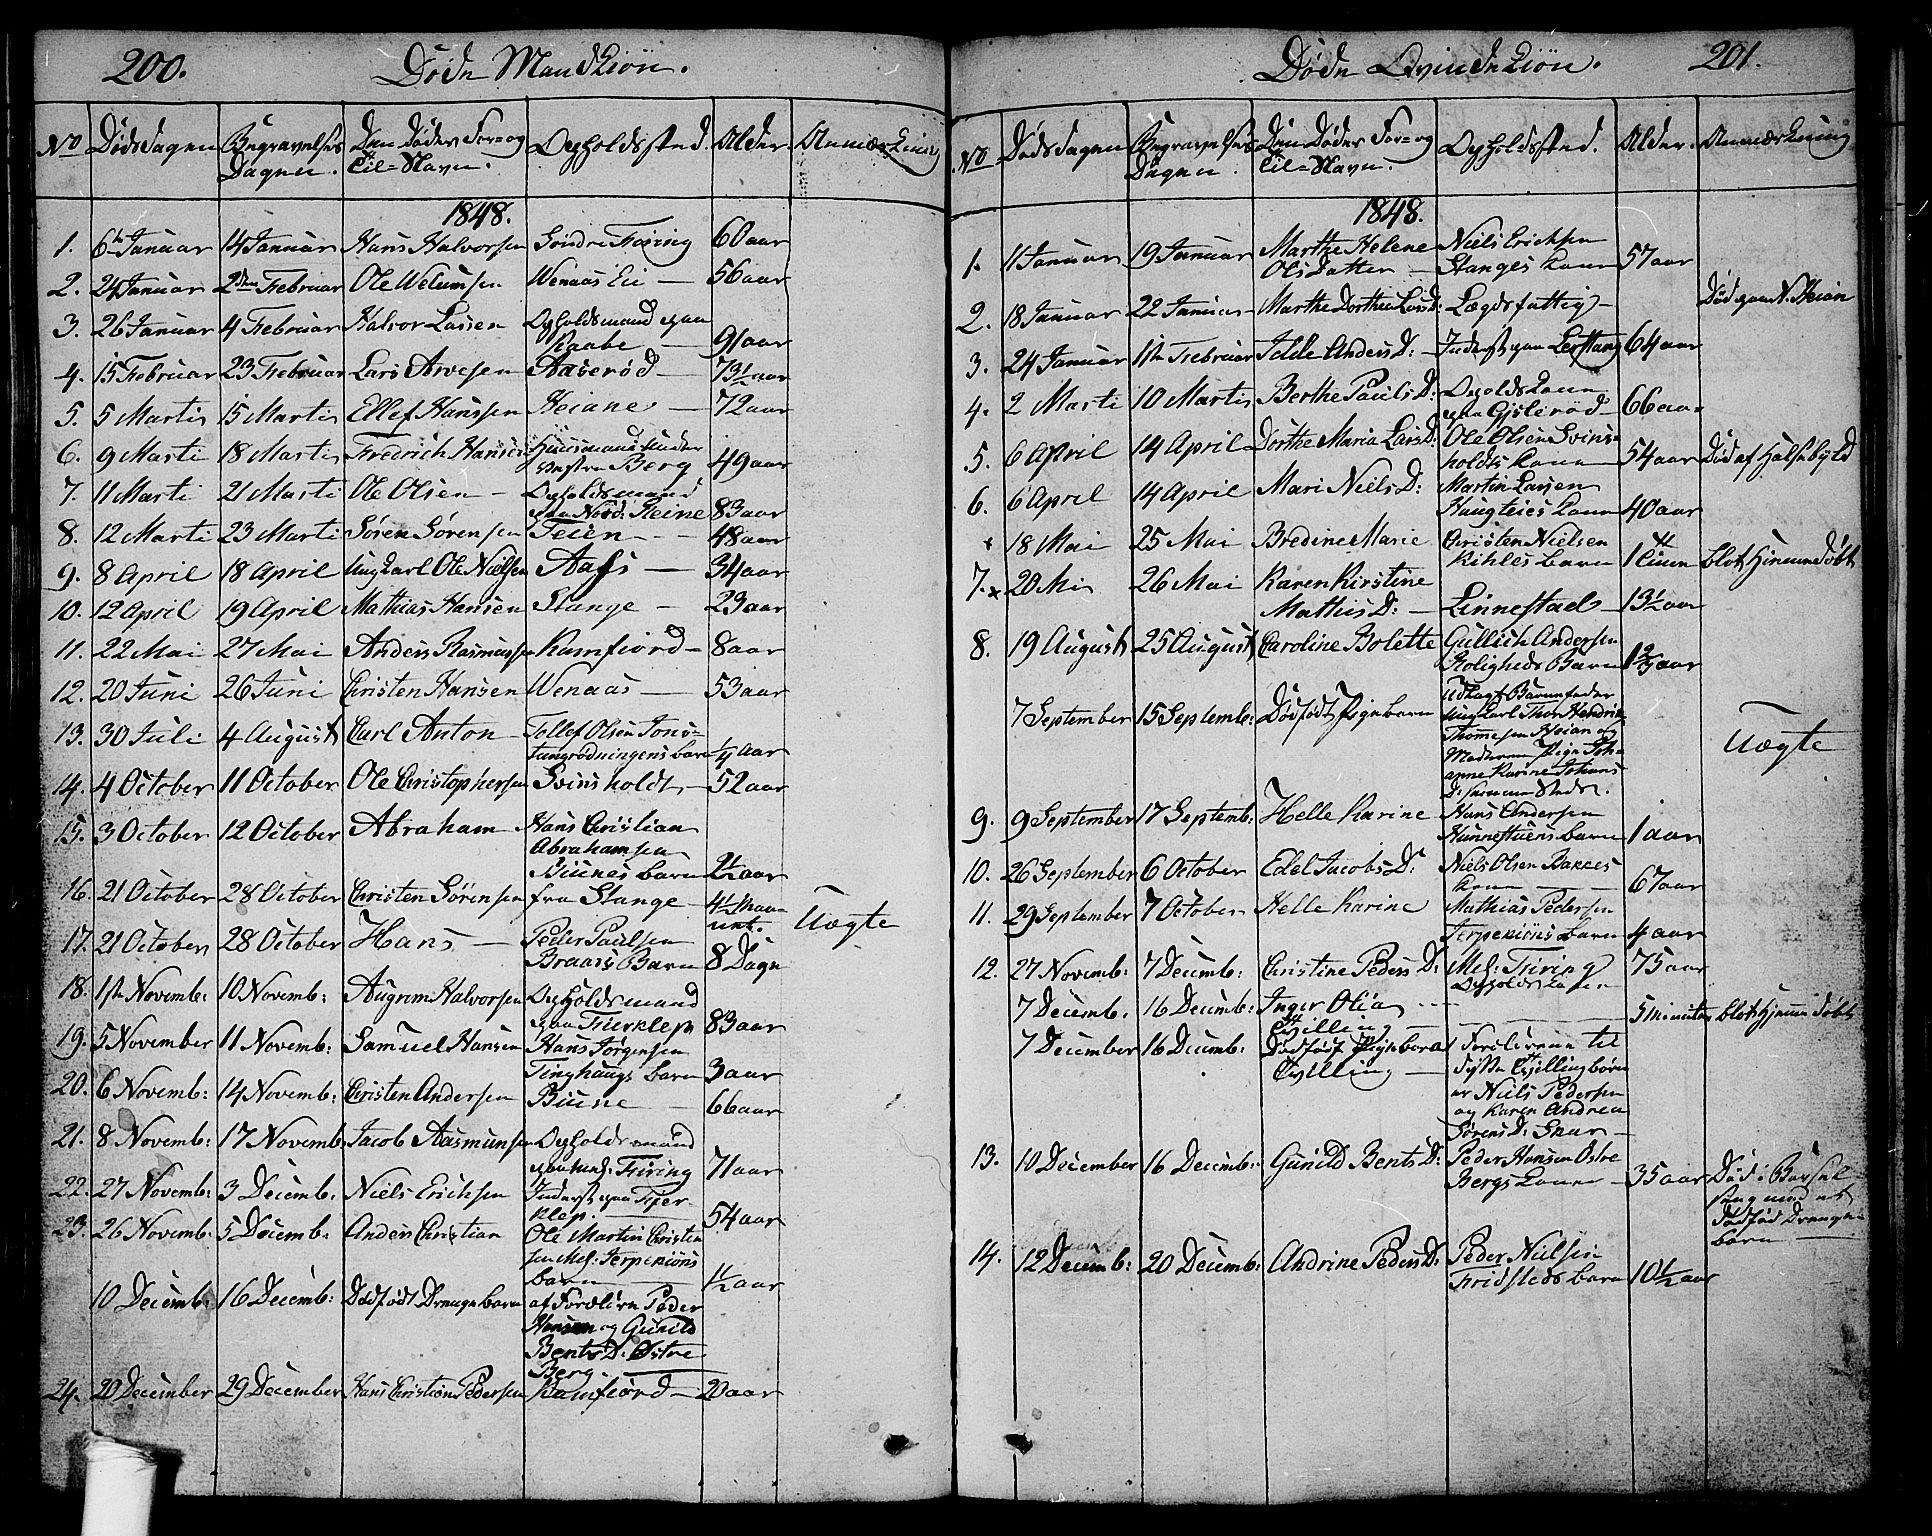 200. Døde Mandkiøn.
No Dødsdagen Begravelses Den Dødes For= og Opholdssted. Alder. Anmærkning
Dagen. Til=Navn.
1848.
1. 6te Januar 14 Januar Hans Halvorsen Søndre Foiring 60 aar
2. 24 Januar 2den Februar Ole Welumsen Wenaas Ei — 56 aar
3. 26 Januar 4 Februar Halvor Larsen Opholdsmand paa
Raabe — 91 aar
4. 15 Februar 23 Februar Lars Arvesen Aaserød — 73½ aar
5. 5 Marti 15 Marti Ellef Hanssen Heiane — 72 aar
6. 9 Marti 18 Marti Fredrich Hansen Huusmand under
Østre Berg 49 aar
7. 11 Marti 21 Marti Ole Olsen — Opholdsmand
paa Nord: Reine 83 aar
8. 12 Marti 23 Marti Sören Sörensen Teien — 48 aar
9. 8 April 18 April Ungkarl Ole Nielsen Aafs — 34 aar
10. 12 April 19 April Mathias Hansen Stange — 23 aar
11. 22 Mai 27 Mai Anders Rasmussen Ramfiord — 8 aar
12. 20 Juni 26 Juni Christen Hansen Wenaas — 53 aar
13. 30 Juli 4 August Carl Anton — Tollef Olsen Jons=
tangrødningens barn ¼ aar
14. 4 October 11 October Ole Christophersen Svinsholdt — 52 aar
15. 3 October 12 October Abraham — Hans Christian
Abrahamsen
Biunes barn 2½ aar
16. 21 October 28 October Christen Sörensen fra Stange — 4½ Maa=
net. Uægte
17. 21 October 28 October Hans — Peder Paulsen
Braars Barn 8 Dage
18. 1ste Novemb: 10 Novemb: Augrim Halvorsen Opholdsmand
paa Fierklep 83 aar
19. 5 November 11 Novemb: Samuel Hansen Hans Jörgensen
Tinghaugs barn 3 aar
20. 6 Novemb: 14 Novemb: Christen Andersen Biune — 66 aar
21. 8 Novemb: 17 Novemb Jacob Aasmunsen Opholdsmand
paa Mel: Furing 71 aar
22. 27 Novemb: 3 Decemb: Niels Erichsen Inderst paa Fier
klep. — 54 aar
23. 26 Novemb: 5 Decemb: Anders Christian Ole Martin Christen
sen Mel: Terpekiöns
barn — 1½ aar
10 Decemb: 16 Decemb: Dødfødt Drengebarn af Foreldre Peder
Hansen og Gunild
Bents D: Østre
Berg. —
24. 20 December 29 December Hans Christian Pedersen Ramfiord — 20 aar
Døde Qvindekiøn. 201.
No Dødsdagen Begravelses Den Dødes For= og Opholdssted. Alder. Anmærkning
Dagen. Til=Navn.
1848.
1. 11 Januar 19 Januar Marthe Helene Niels Erichsen
Olsdatter — Stanges kone 57 aar
2. 18 Januar 22 Januar Marthe Dorthea Lars D: Lægdsfattig — Død paa N. Reine
3. 24 Januar 11te Februar Idde Anders D: — Inderst paa Lerstang 64 aar
4. 2 Marti 10 Marti Berthe Pauls D: Opholdskone
paa Gjslerød — 66 aar
5. 6 April 14 April Dorthe Maria Lars D: Ole Olsen Svins=
holdts kone 54 aar Død af Halsebyld
6. 6 April 14 April Mari Niels D: Martin Larsen
Haugteies kone 40 aar
x 18 Mai 25 Mai Bredine Marie Christen Nielsen
Kihles barn 1 Time blot Hjemmedøbt
7. x 20 Mi 26 Mai Karen Kirstine
Mathis D: — Linnestad — 13½ aar
8. 19 August 25 August Caroline Bolette Gullich Andersen
Roligheds Barn 1⅔ aar
7 September 15 Septemb: Dødfødt Pigebarn Udlagt Barnefader
Ungkarl Thor Hendrik
Thomesen Heian og
Moderen Pige Joh=
anne Karine Johans
D: samme Sted. Uægte
9. 9 September 17 Septemb: Helle Karine Hans Andersen
Hunnestuens barn 1 aar
10. 26 September 6 October Edel Jacobs D: Niels Olsen Bakkes
kone — 67 aar
11. 29 September 7 October Helle Karine Mathias Pedersen
Terpekiöns barn 4 aar
12. 27 Novemb: 7 Decemb: Christine Peders D: Mel: Furing
Opholdskone 75 aar
7 Decemb: 16 Decemb: Inger Olia 5 minuter blot Hjemmedøbt
Tvilling —
7 December 16 Decemb: Dødfødt Pigebarn Foreldrene til
Tvilling — disse Tvillingbørn
er Niels Pedersen
og Karen Andrea
Sörens D: Skar —
13. 10 December 16 Decemb: Gunild Bents D: Peder Hansen Østre
Bergs kone — 35 aar Død i Barsel
seng med et
dødfød Drenge=
barn —
14. 12 Decemb: 20 Decemb: Andrine Peders D: Peder Nielsen
Fridsteds barn 10½ aar